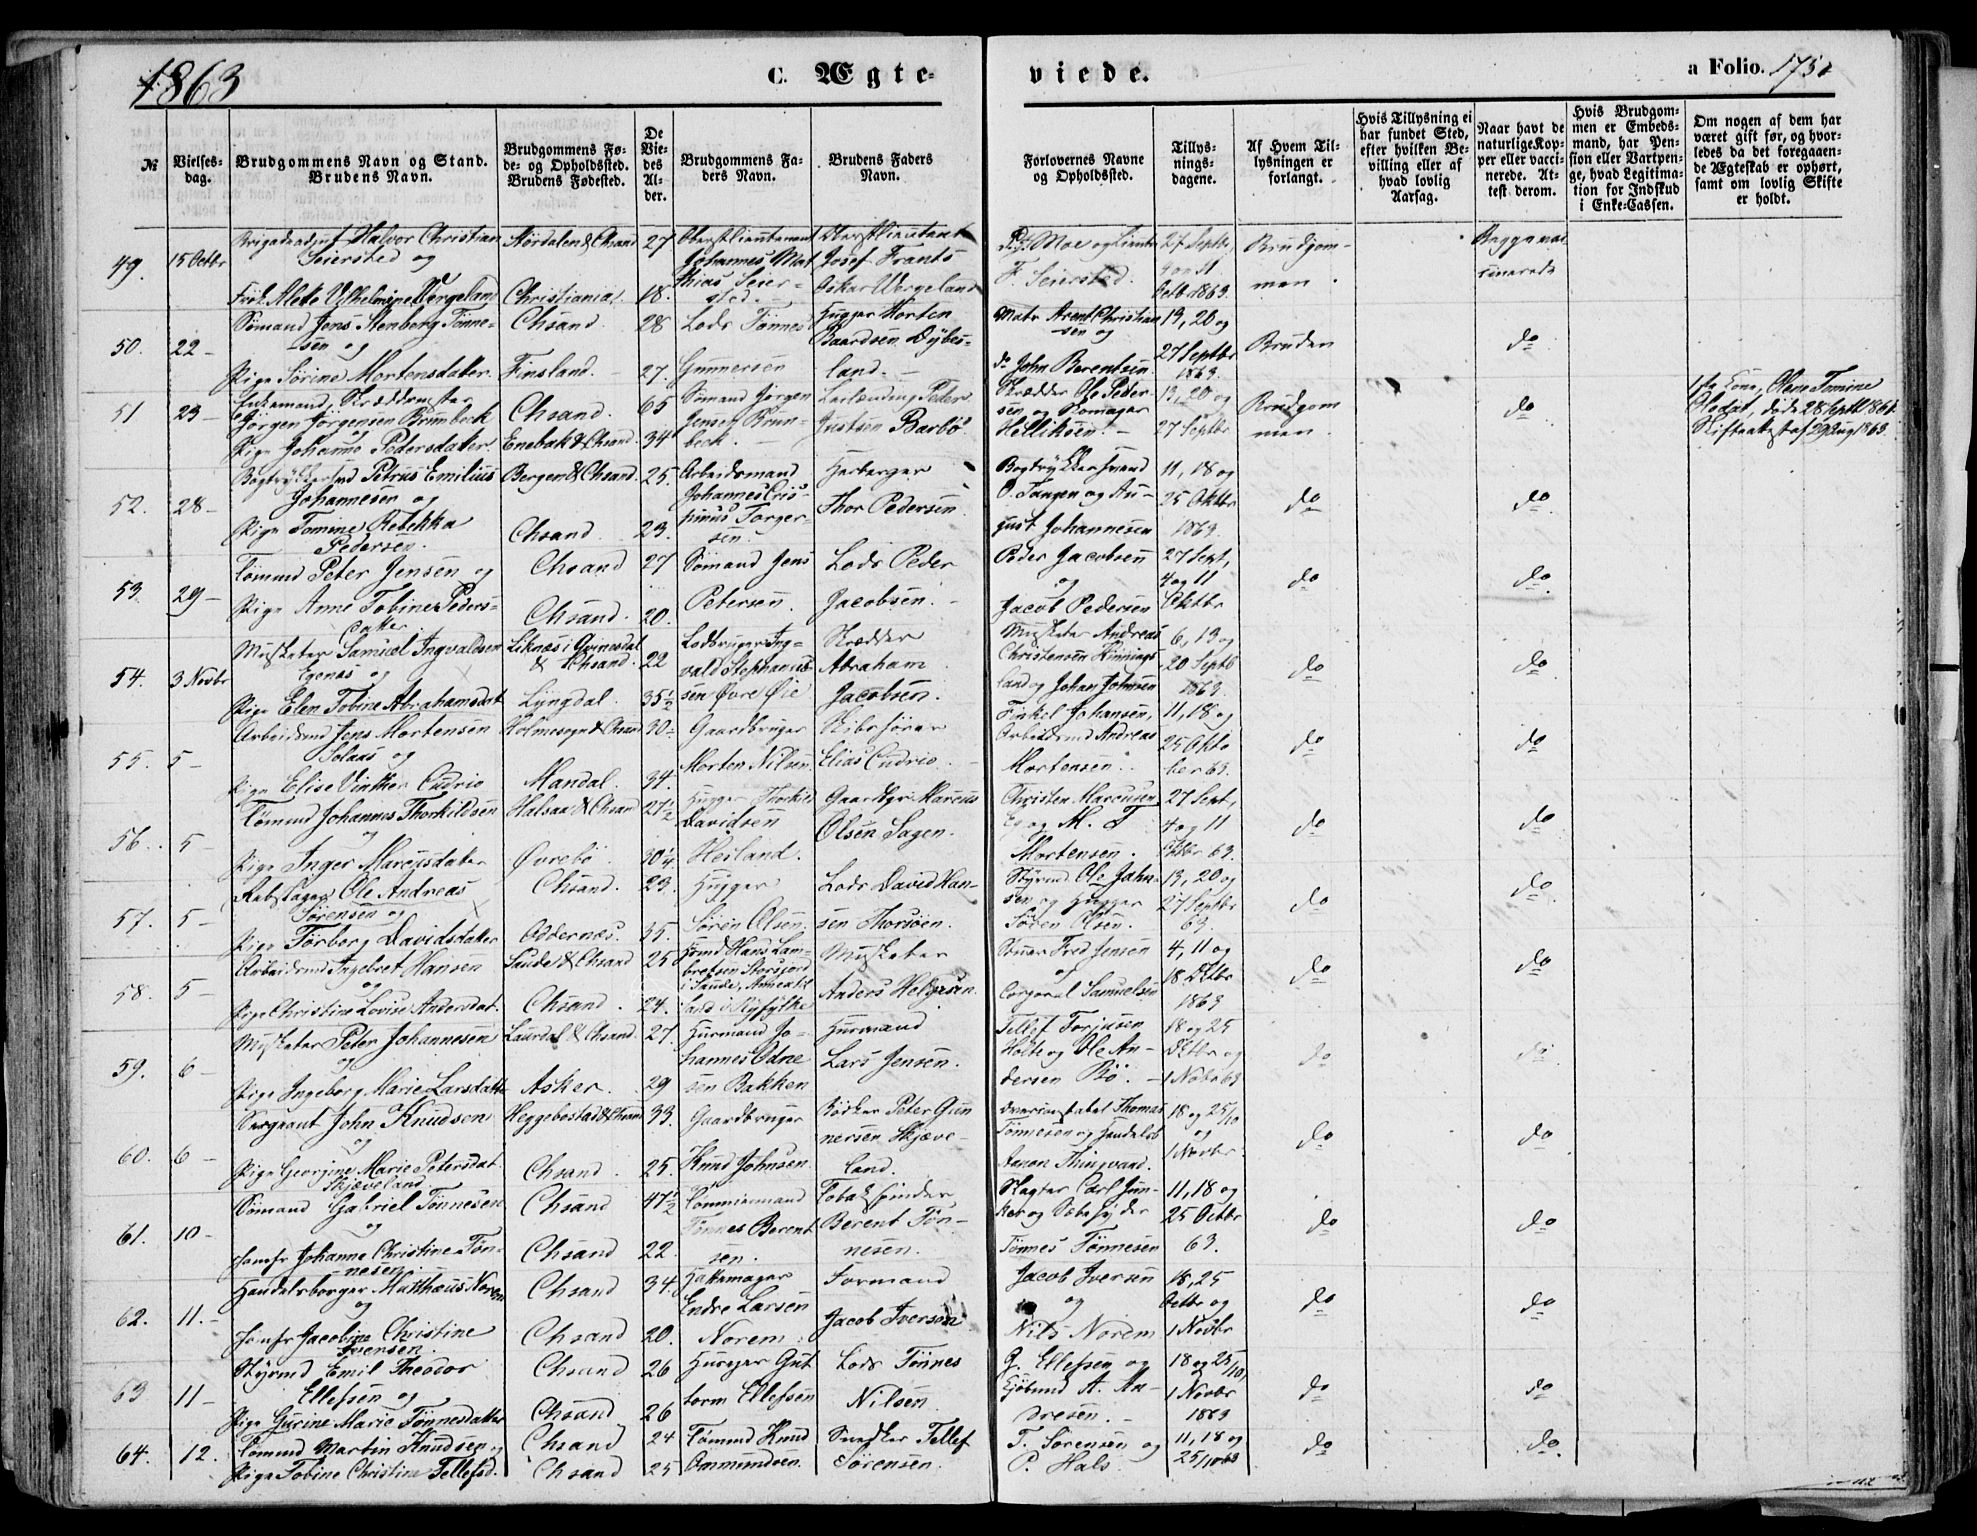 1863
C. Ægte-
viede.
a Folio. 175.
№
Vielses-
dag.
Brudgommens Navn og Stand.
Brudens Navn.
Brudgommens Fø-
de- og Opholdssted.
Brudens Fødested.
De
Vie-
des
Al-
der.
Brudgommens Fa-
ders Navn.
Brudens Faders
Navn.
Forlovernes Navne
og Opholdssted.
Tillys-
nings-
dagene.
Af Hvem Til-
lysningen er
forlangt.
Hvis Tillysning ei
har fundet Sted,
efter hvilken Be-
villing eller af
hvad lovlig
Aarsag.
Naar havt de
naturlige Kop-
per eller vacci-
nerede. At-
test derom.
Hvis Brudgom-
men er Embeds-
mand, har Pen-
sion eller Vartpen-
ge, hvad Legitima-
tion for Indskud
i Enke-Cassen.
Om nogen af dem har
været gift før, og hvor-
ledes da det foregaaen-
de Ægteskab er ophørt,
samt om lovlig Skifte
er holdt.
49. 15 Octbr
Brigadeadjut Halvor Christian
Seiersted og
Frøk. Alette Vilhelmine Wergeland
Størdalen & Chsand
Christiania
27
18.
Oberstlieutenant
Johannes Mat
thias Seier-
sted.
Oberstlieutenant
Josef Frants
Oskar Wergeland
Moe og Lieutn
F. Seiersted.
27 Septbr,
4 og 11
Octb. 1863.
Brudgom-
men.
Begge vac
cinerede
50. 22 -
Sømand Jens Stenberg Tønne-
sen og
Pige Sørine Mortensdatter.
Chsand.
Finsland.
28
27.
Lods Tønnes
Gunnersen
Hugger Morten
Baardsen Dybes-
land. -
Matr Arent Christian
sen og
do John Berentsen.
13, 20 og
27 Septbr
1863.
Bruden
do
51 23 -
Enkemand, Skræddermester
Jørgen Jørgensen Brumbeck
og
Pige Johanne Pedersdatter.
Chsand.
Enebak & Chsand.
65
34
Sømand Jørgen
Jensen Brum-
beck. -
Peder
Justsen Barbo
Skrædder Ole Peder-
sen og Skomager
Helliksen. -
13, 20 og
27 Septbr
Brudgom
men.
do
1ste Kone, Olene Tomine
død 28 Septb 1861.
Skifteattest af 29 Aug 1863.
52. 28 -
Bogtrykkersvd Petrus Emilius
Johannesen og
Pige Tomine Rebekka
Pedersen.
Bergen & Chsand.
Chsand.
25.
23.
Arbeidsmand
Johannes Cris-
pinus Torger-
sen.
Herberger
Thor Pedersen.
Bogtrykkersvend
O. Tangen og Au-
gust Johannesen
11, 18 og
25 Oktbr
1863.
do
do
53. 29 -
Tømmd Peter Jensen og
Pige Anne Tobine Peders-
datter.
Chsand
Chsand.
27
20.
Sømand Jens
Petersen.
Lods Peder
Jacobsen. -
Peder Jacobsen
og
Jacob Pedersen
27 Sept,
4 og 11
Oktbr
do
do
54. 3 Novbr
Musketer Samuel Ingvaldsen
Egenes og
Pige Elen Tobine Abrahamsdat
Liknæs i Qvinesdal
& Chsand.
Lyngdal.
22
35½
Lodbruger Ing-
vald Stephan
sen Øvre Øie
Skrædder
Abraham
Jacobsen.
Musketer Andreas
Christensen Hinnings-
land og Johan Johnsen
6, 13 og
20 Septb
1863.
do
do
55. 5 -
Arbeidsmd Jens Mortensen
Solaas og
Pige Elise Vinther Cudrio
Holmesogn & Chsand
Mandal.
30 -
34.
Gaardbruger
Morten Nilsen.
Skibsfører
Elias Cudrio. -
Finkel Johansen,
Arbeidsmd Andreas
Mortensen.
11, 18 og
25 Okto
ber 63.
do
do
56. 5 -
Tømmd Johannes Thorkildsen
og
Pige Inger Marcusdatter
Halsaa & Chsand
Øvrebø.
27½
30¼
Hugger Thorkild
Davidsen
Heiland.
Gaardbgr. Marcus
Olsen Sagen.
Christen Marcusen
og M. T.
Mortensen.
27 Sept,
4 og 11
Oktbr 63.
do
do
57. 5 -
Rebslager Ole Andreas
Sørensen og
Pige Torborg Davidsdatter
Chsand.
Oddernæs.
23.
35.
Hugger
Søren Olsen.
Lods David Han-
sen Thorsøen.
Styrmd Ole Jahn-
sen og Hugger
Søren Olsen.
13, 20 og
27 Septbr
63.
do
do
58. 5 -
Arbeidsmd Ingebret Hansen
og
Pige Christine Lovise Andersdat.
Saude & Chsand
Chsand.
25
24.
Hans Lam-
bretsen Storsjord
i Saude,
i Ryfylke
Musketer
Anders Helgesen.
Stuer Fred Jensen
og
Corporal Samuelsen
4, 11 og
18 Oktbr
1863
do
do
59. 6 -
Musketer Peter Johannesen
og
Pige Ingeborg Marie Larsdatter
Laurdal & Chsand.
Asker.
27.
29
Huusmand Jo-
hannes Odne
sen Bakken
Huusmand
Lars Jensen.
Tellef Torjusen
Holte og Ole An-
dersen Bø. -
18 og 25
Oktbr og
1 Novbr 63
do
do
60. 6 -
Sergeant John Knudsen
og
Pige Georgine Marie Petersdat.
Skjæveland
Heggebostad & Chsand
Chsand.
33.
25.
Gaardbruger
Knud Johnsen
Bødker Peter Gun
nersen Skjæve-
land.
Overconstabel Thomas
Tønnesen og Handelsb
Aanon Thingvand.
18 og 25/10
og
1 Novbr.
do
do
61. 10 -
Sømand Gabriel Tønnesen
og
Jomfr Johanne Christine Tøn-
nesen.
Chsand
Chsand
47½
22.
Tømmermand
Tønnes Berent
sen.
Tobakspinder
Berent Tøn-
nesen.
Slagter Carl Jun-
ker og Sæbesyder
Tønnes Tønnesen
11, 18 og
25 Octbr
63.
do
do
62. 11. -
Handelsborger Matthæus Norem
og
Jomfr Jacobine Christine
Iversen.
Chsand
Chsand
34.
20.
Hattemager
Endre Larsen
Norem.
Formand
Jacob Iversen
Jacob Iversen
og
Nils Norem
18, 25
Octbr og
1 Novbr
do
do
63 11 -
Styrmd Emil Theodor
Ellefsen og
Pige Gurine Marie Tønnesdatter
Chsand
Chsand
26
26
Hugger Gut
torm Ellefsen
Lods Tønnes
Nilsen.
G. Ellefsen og
Kjøbmd A. An-
dresen. -
18 og 25/10,
1 Novbr
1863
do
do
64. 12.
Tømmd Martin Knudsen og
Pige Tobine Christine Tellefsd.
Chsand
Chsand
24
25
Tømmd Knud
Ommundsen.
Snedker Tellef
Sørensen.
T. Sørensen og
P. Hals
11, 18 og
25/10 63
do
do